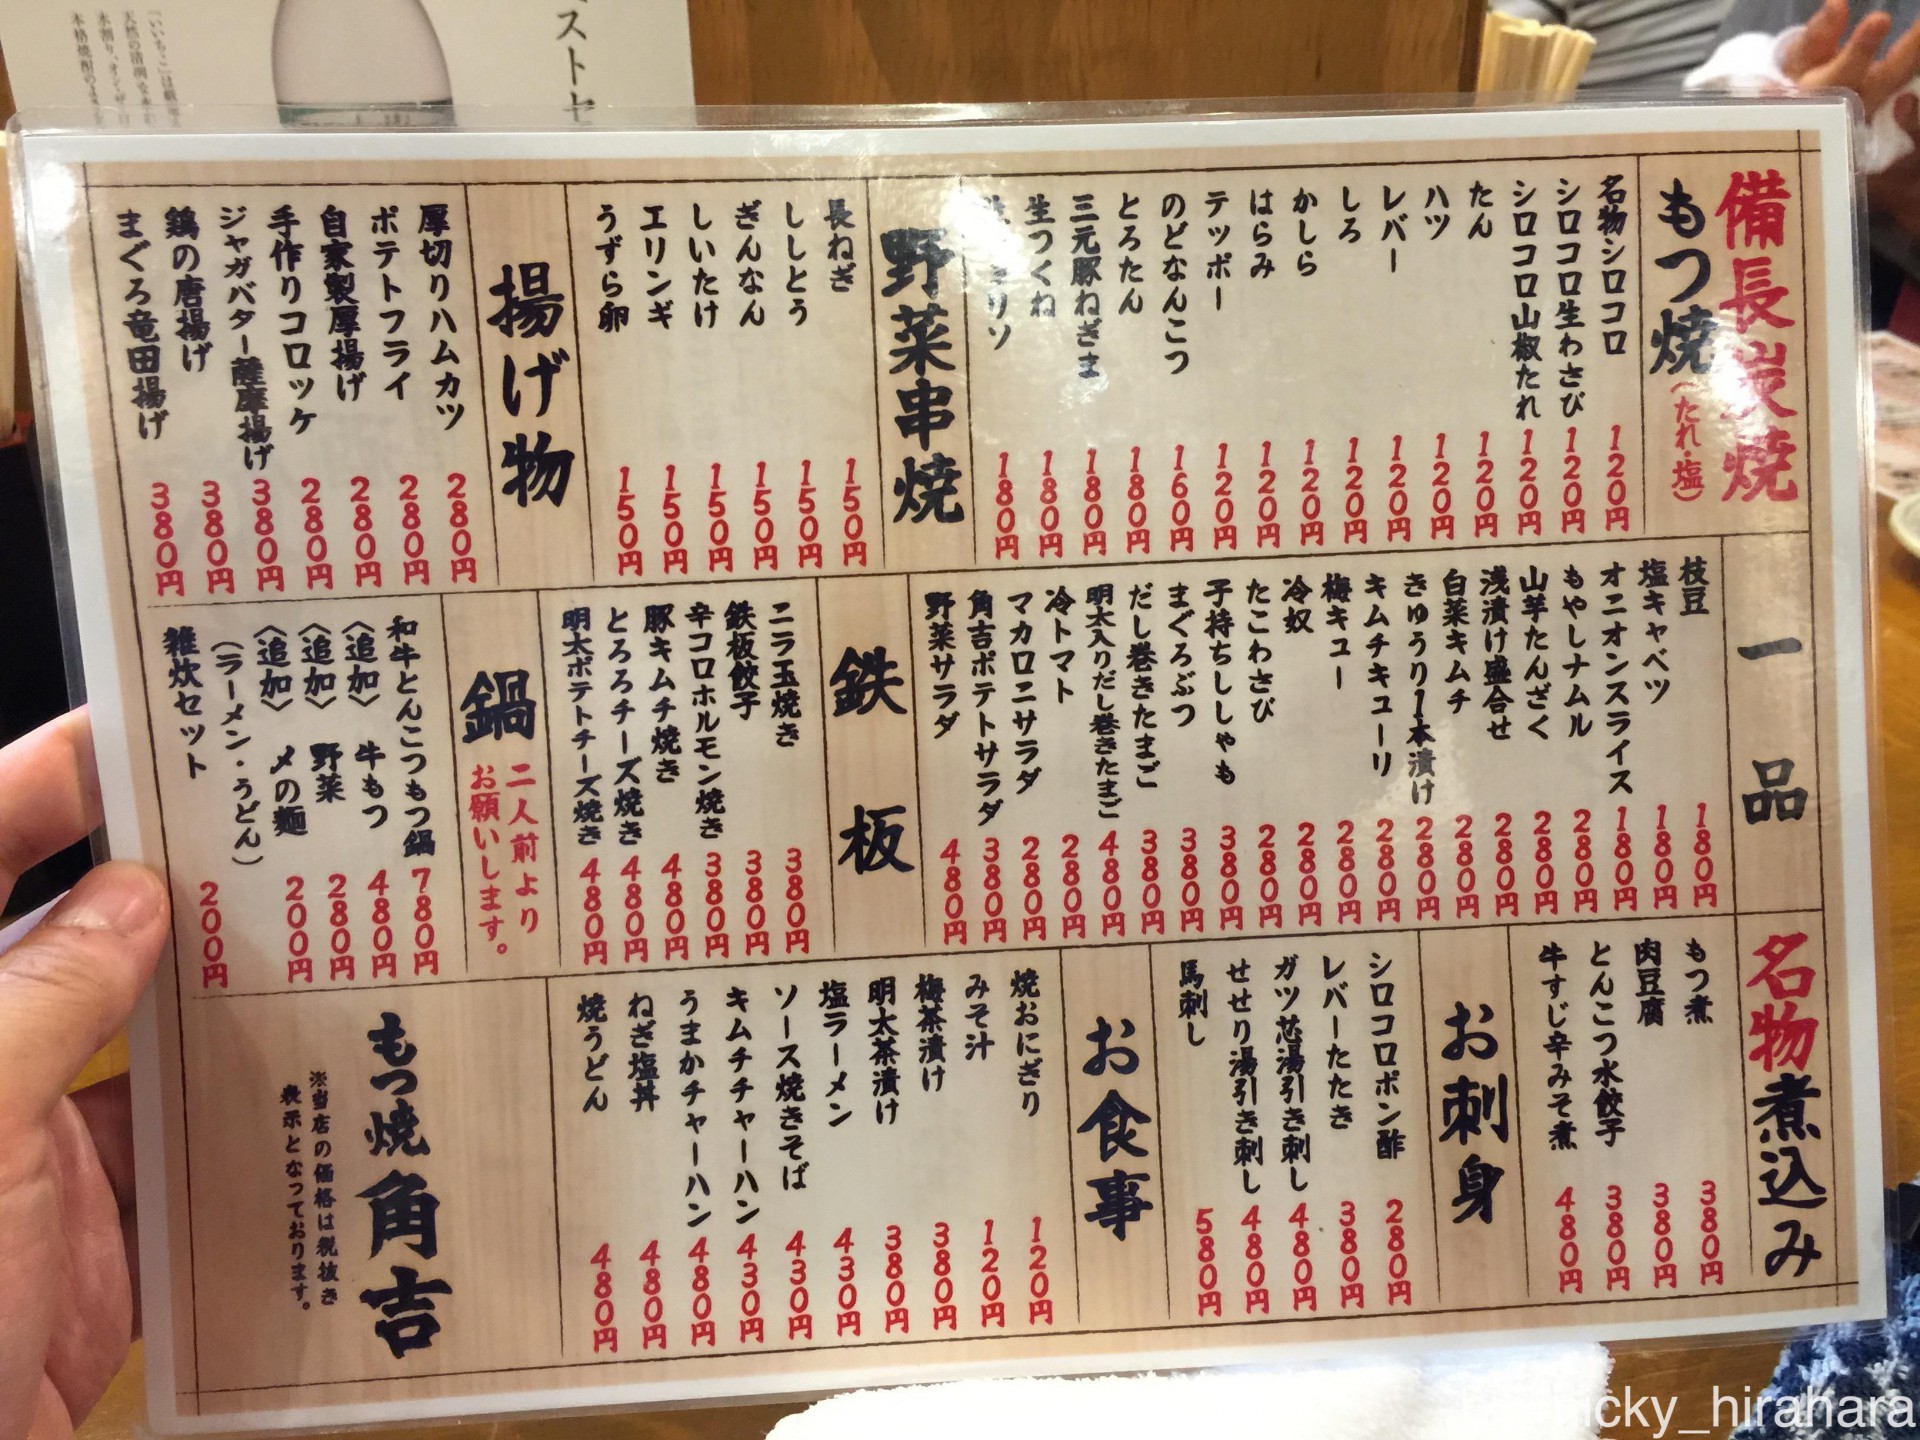 備長炭焼
もつ焼(たれ・塩)
名物シロコロ 120円
シロコロ生わさび 120円
シロコロ山椒たれ 120円
たん 120円
ハツ 120円
レバー 120円
しろ 120円
かしら 120円
はらみ 120円
テッポー 120円
のどなんこつ 160円
とろたん 180円
三元豚ねぎま 180円
生つくね 180円
180円
野菜串焼
長ねぎ 150円
ししとう 150円
ぎんなん 150円
しいたけ 150円
エリンギ 150円
うずら卵 150円
揚げ物
厚切りハムカツ 280円
ポテトフライ 280円
自家製厚揚げ 280円
手作りコロッケ 280円
ジャガバター薩摩揚げ 380円
鶏の唐揚げ 380円
まぐろ竜田揚げ 380円
一品
枝豆 180円
塩キャベツ 180円
オニオンスライス 180円
もやしナムル 280円
山芋たんざく 280円
浅漬け盛合せ 280円
白菜キムチ 280円
きゅうり1本漬け 280円
キムチキューリ 280円
梅キュー 280円
冷奴 280円
たこわさび 280円
子持ちししゃも 380円
まぐろぶつ 380円
だし巻きたまご 380円
明太入りだし巻きたまご 480円
冷トマト 280円
マカロニサラダ 280円
角吉ポテトサラダ 380円
野菜サラダ 480円
鉄板
ニラ玉焼き 380円
鉄板餃子 380円
辛コロホルモン焼き 380円
豚キムチ焼き 480円
とろろチーズ焼き 480円
明太ポテトチーズ焼き 480円
鍋 二人前より
お願いします。
和牛とんこつもつ鍋 780円
〈追加〉 牛もつ 480円
〈追加〉 野菜 280円
〈追加〉 〆の麺 200円
(ラーメン・うどん)
雑炊セット 200円
名物煮込み
もつ煮 380円
肉豆腐 380円
とんこつ水餃子 380円
牛すじ辛みそ煮 480円
お刺身
シロコロポン酢 280円
レバーたたき 380円
ガツ芯湯引き刺し 480円
せせり湯引き刺し 480円
馬刺し 580円
お食事
焼おにぎり 120円
みそ汁 120円
梅茶漬け 380円
明太茶漬け 380円
塩ラーメン 430円
ソース焼きそば 430円
キムチチャーハン 430円
うまかチャーハン 480円
ねぎ塩丼 480円
焼うどん 480円
もつ焼 角吉
※当店の価格は税抜き
表示となっております。
ストセ
「いいちこ」は
天然の清潤な
水割り、オン・ザ・
本格焼酎の
icky_hirahara